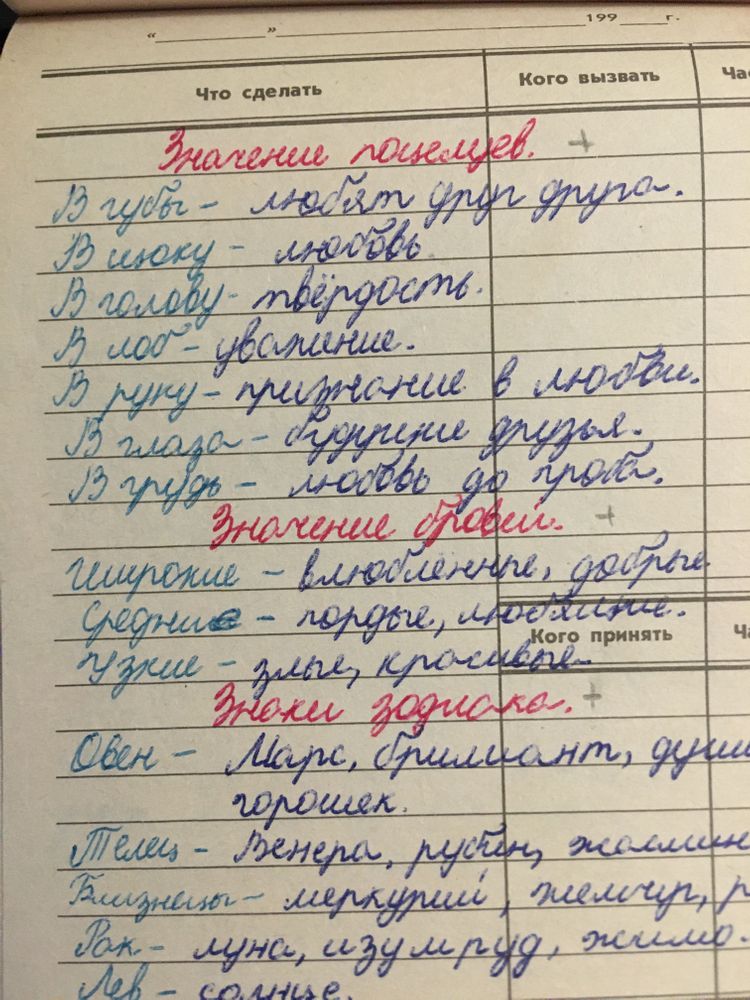 “ ” 199 г.
Что сделать Кого вызвать Час
Значение поцелуев. +
В губы – любят друг друга.
В щоку – любовь.
В голову – твёрдость.
В лоб – уважение.
В руку – признание в любви.
В глаза – будущие друзья.
В грудь – любовь до гроба.
Значение бровей. +
Широкие – влюбленные, добрые
Средние – гордые, любящие.
Кого принять Ча
Узкие – злые, красивые.
Знаки зодиака. +
Овен – Марс, брилиант, души
горошек.
Телец – Венера, рубин,
Близнецы – меркурий, жемчуг, р
Рак – луна, изумруд,
Лев – солнце.